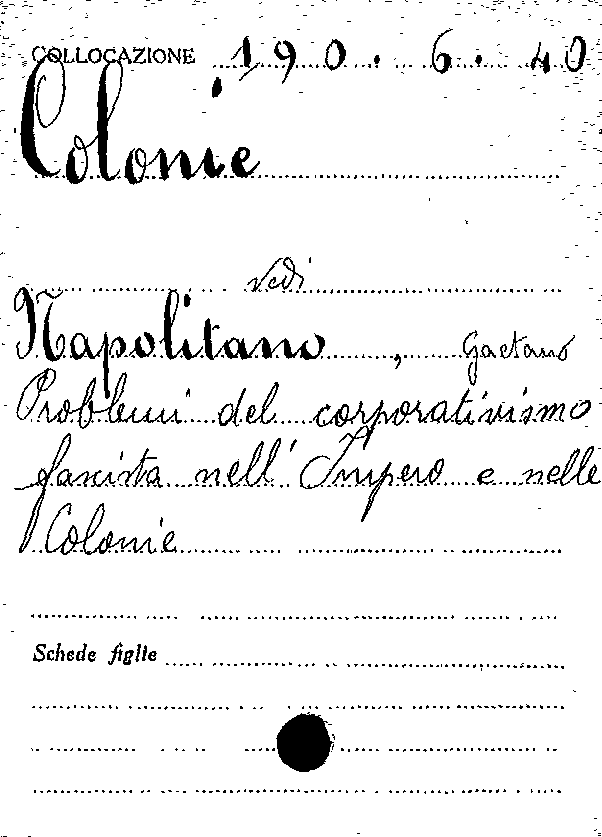 COLLOCAZIONE 190. 6. 40
Colonie
vedi
Napolitano, Gaetano
Problemi del corporativismo
fascista nell'Impero e nelle
Colonie
Schede figlie